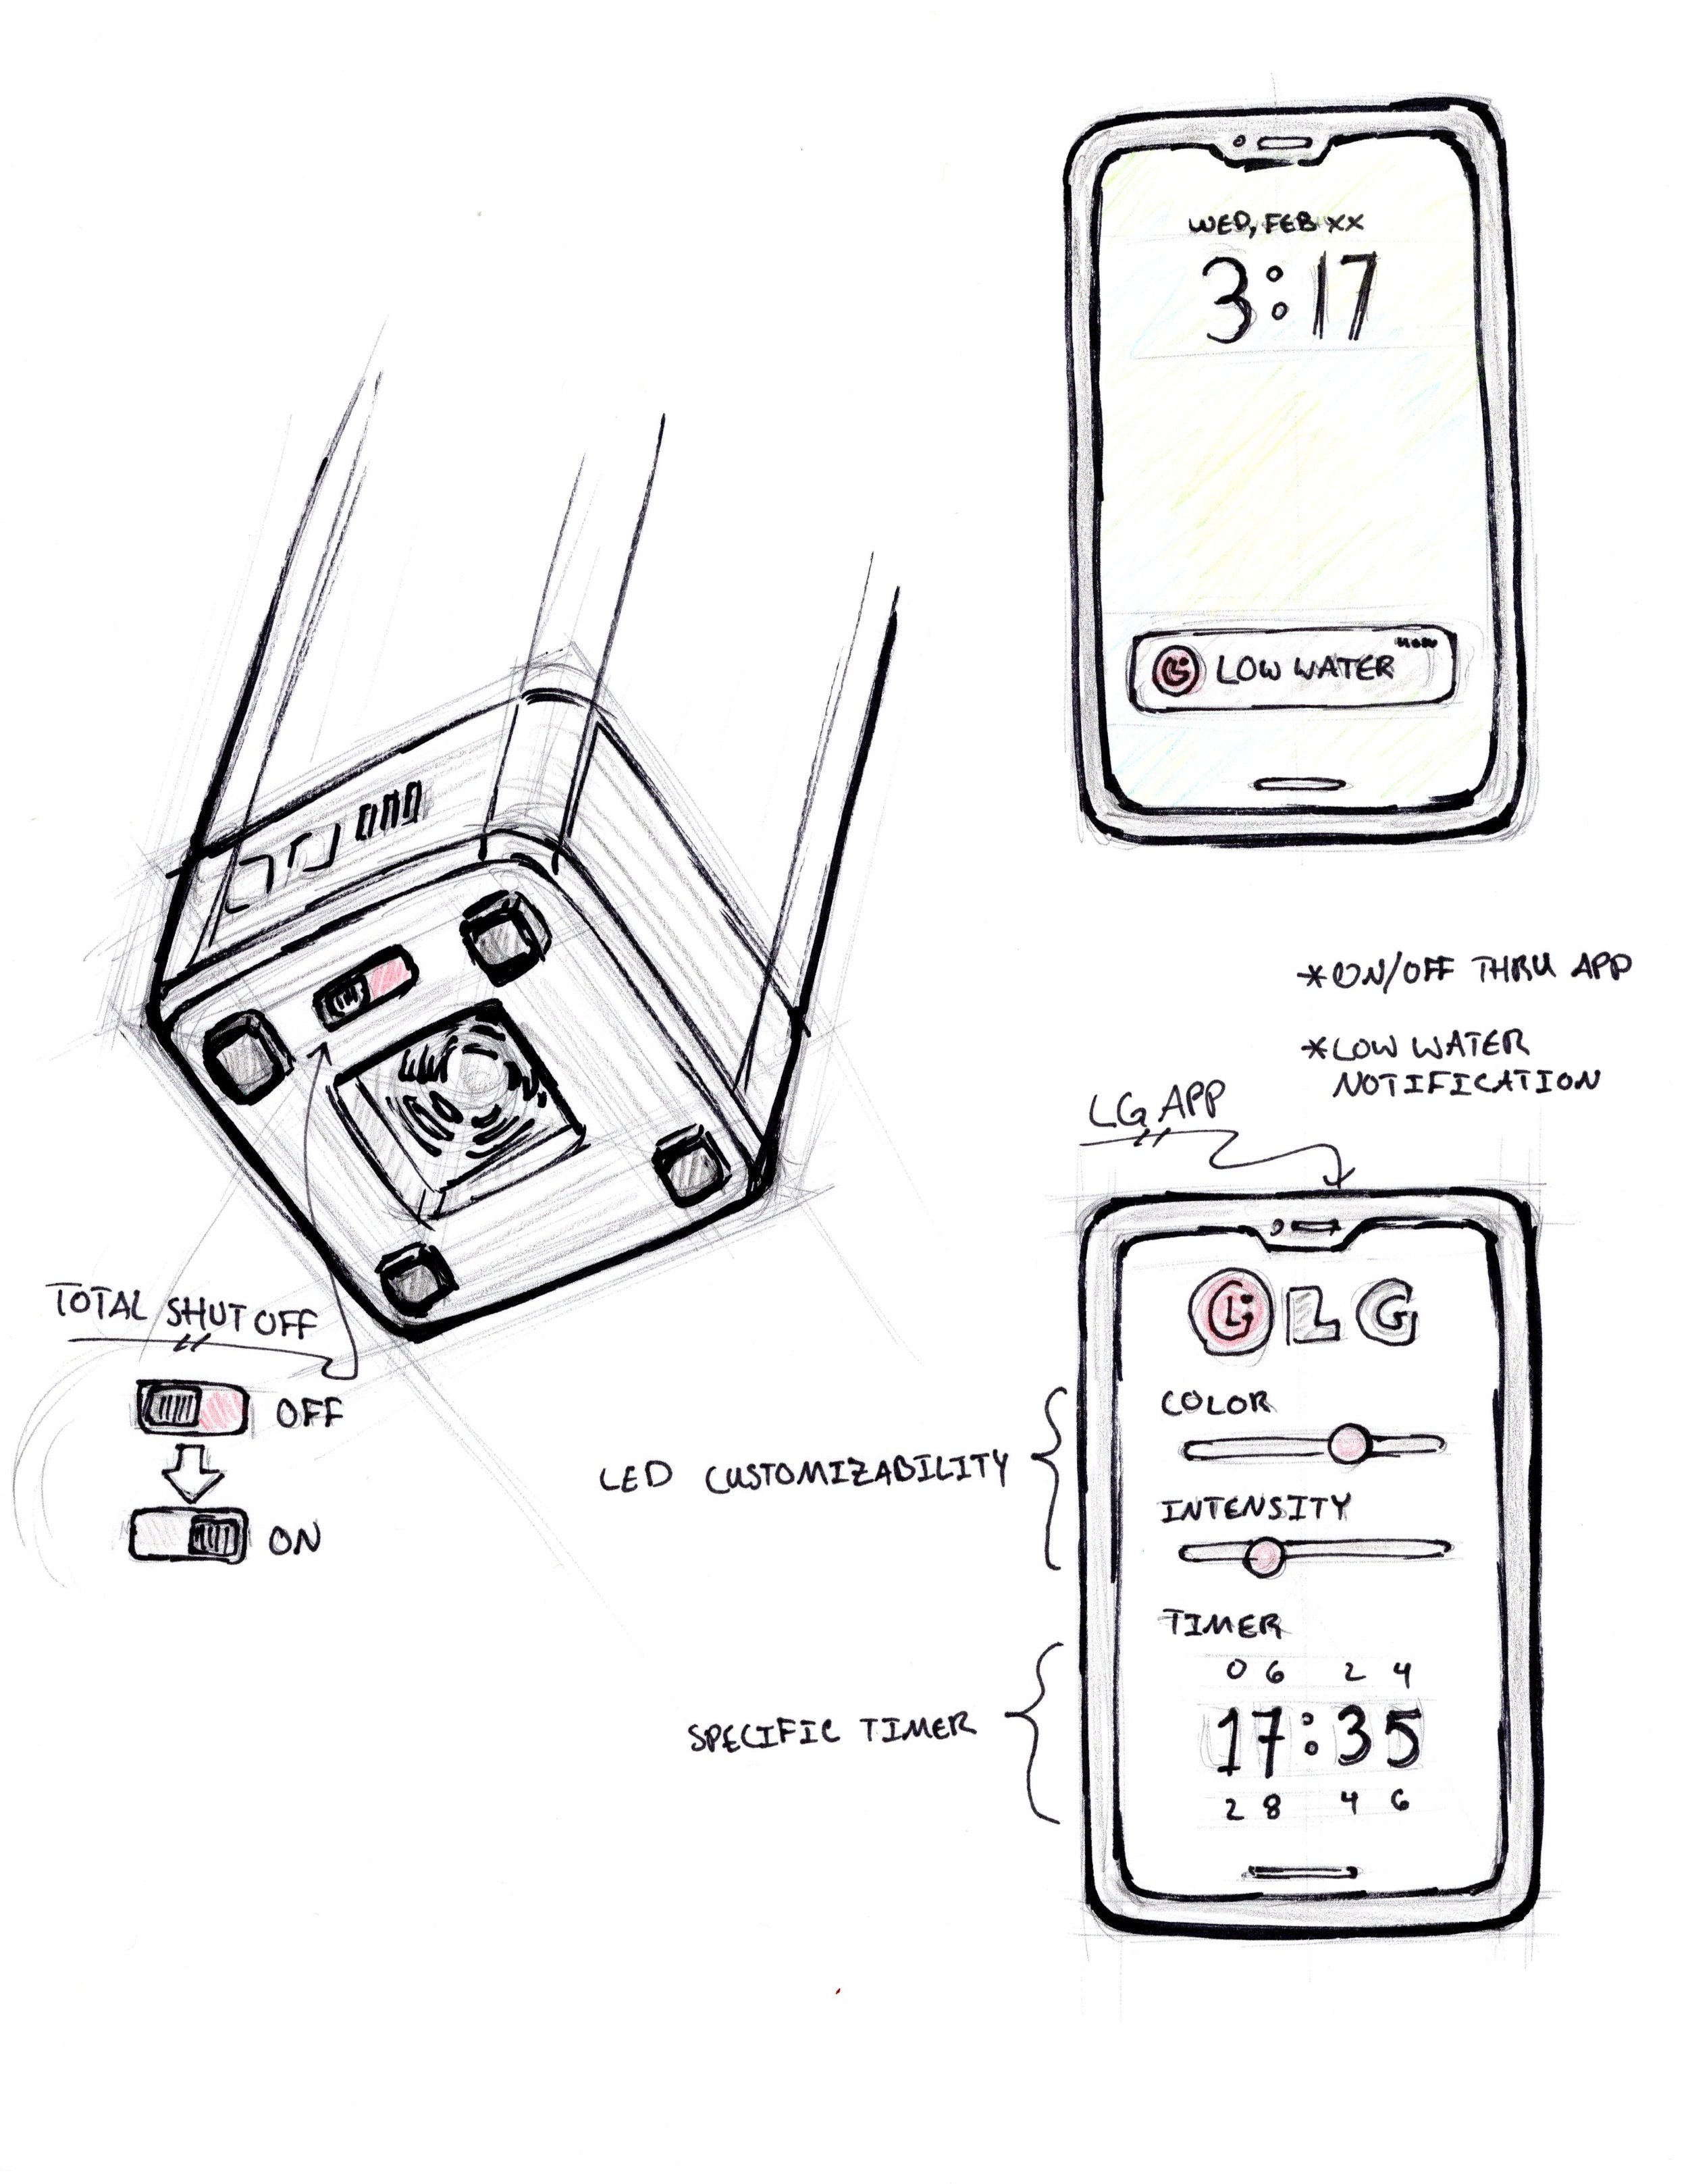 WED, FEB XX
3:17
NOW
LOW WATER
*ON/OFF THRU APP
*LOW WATER
NOTIFICATION
LG APP
TOTAL SHUT OFF
OFF
ON
LG
COLOR
LED CUSTOMIZABILITY
INTENSITY
TIMER
06 24
SPECIFIC TIMER
17:35
28 46